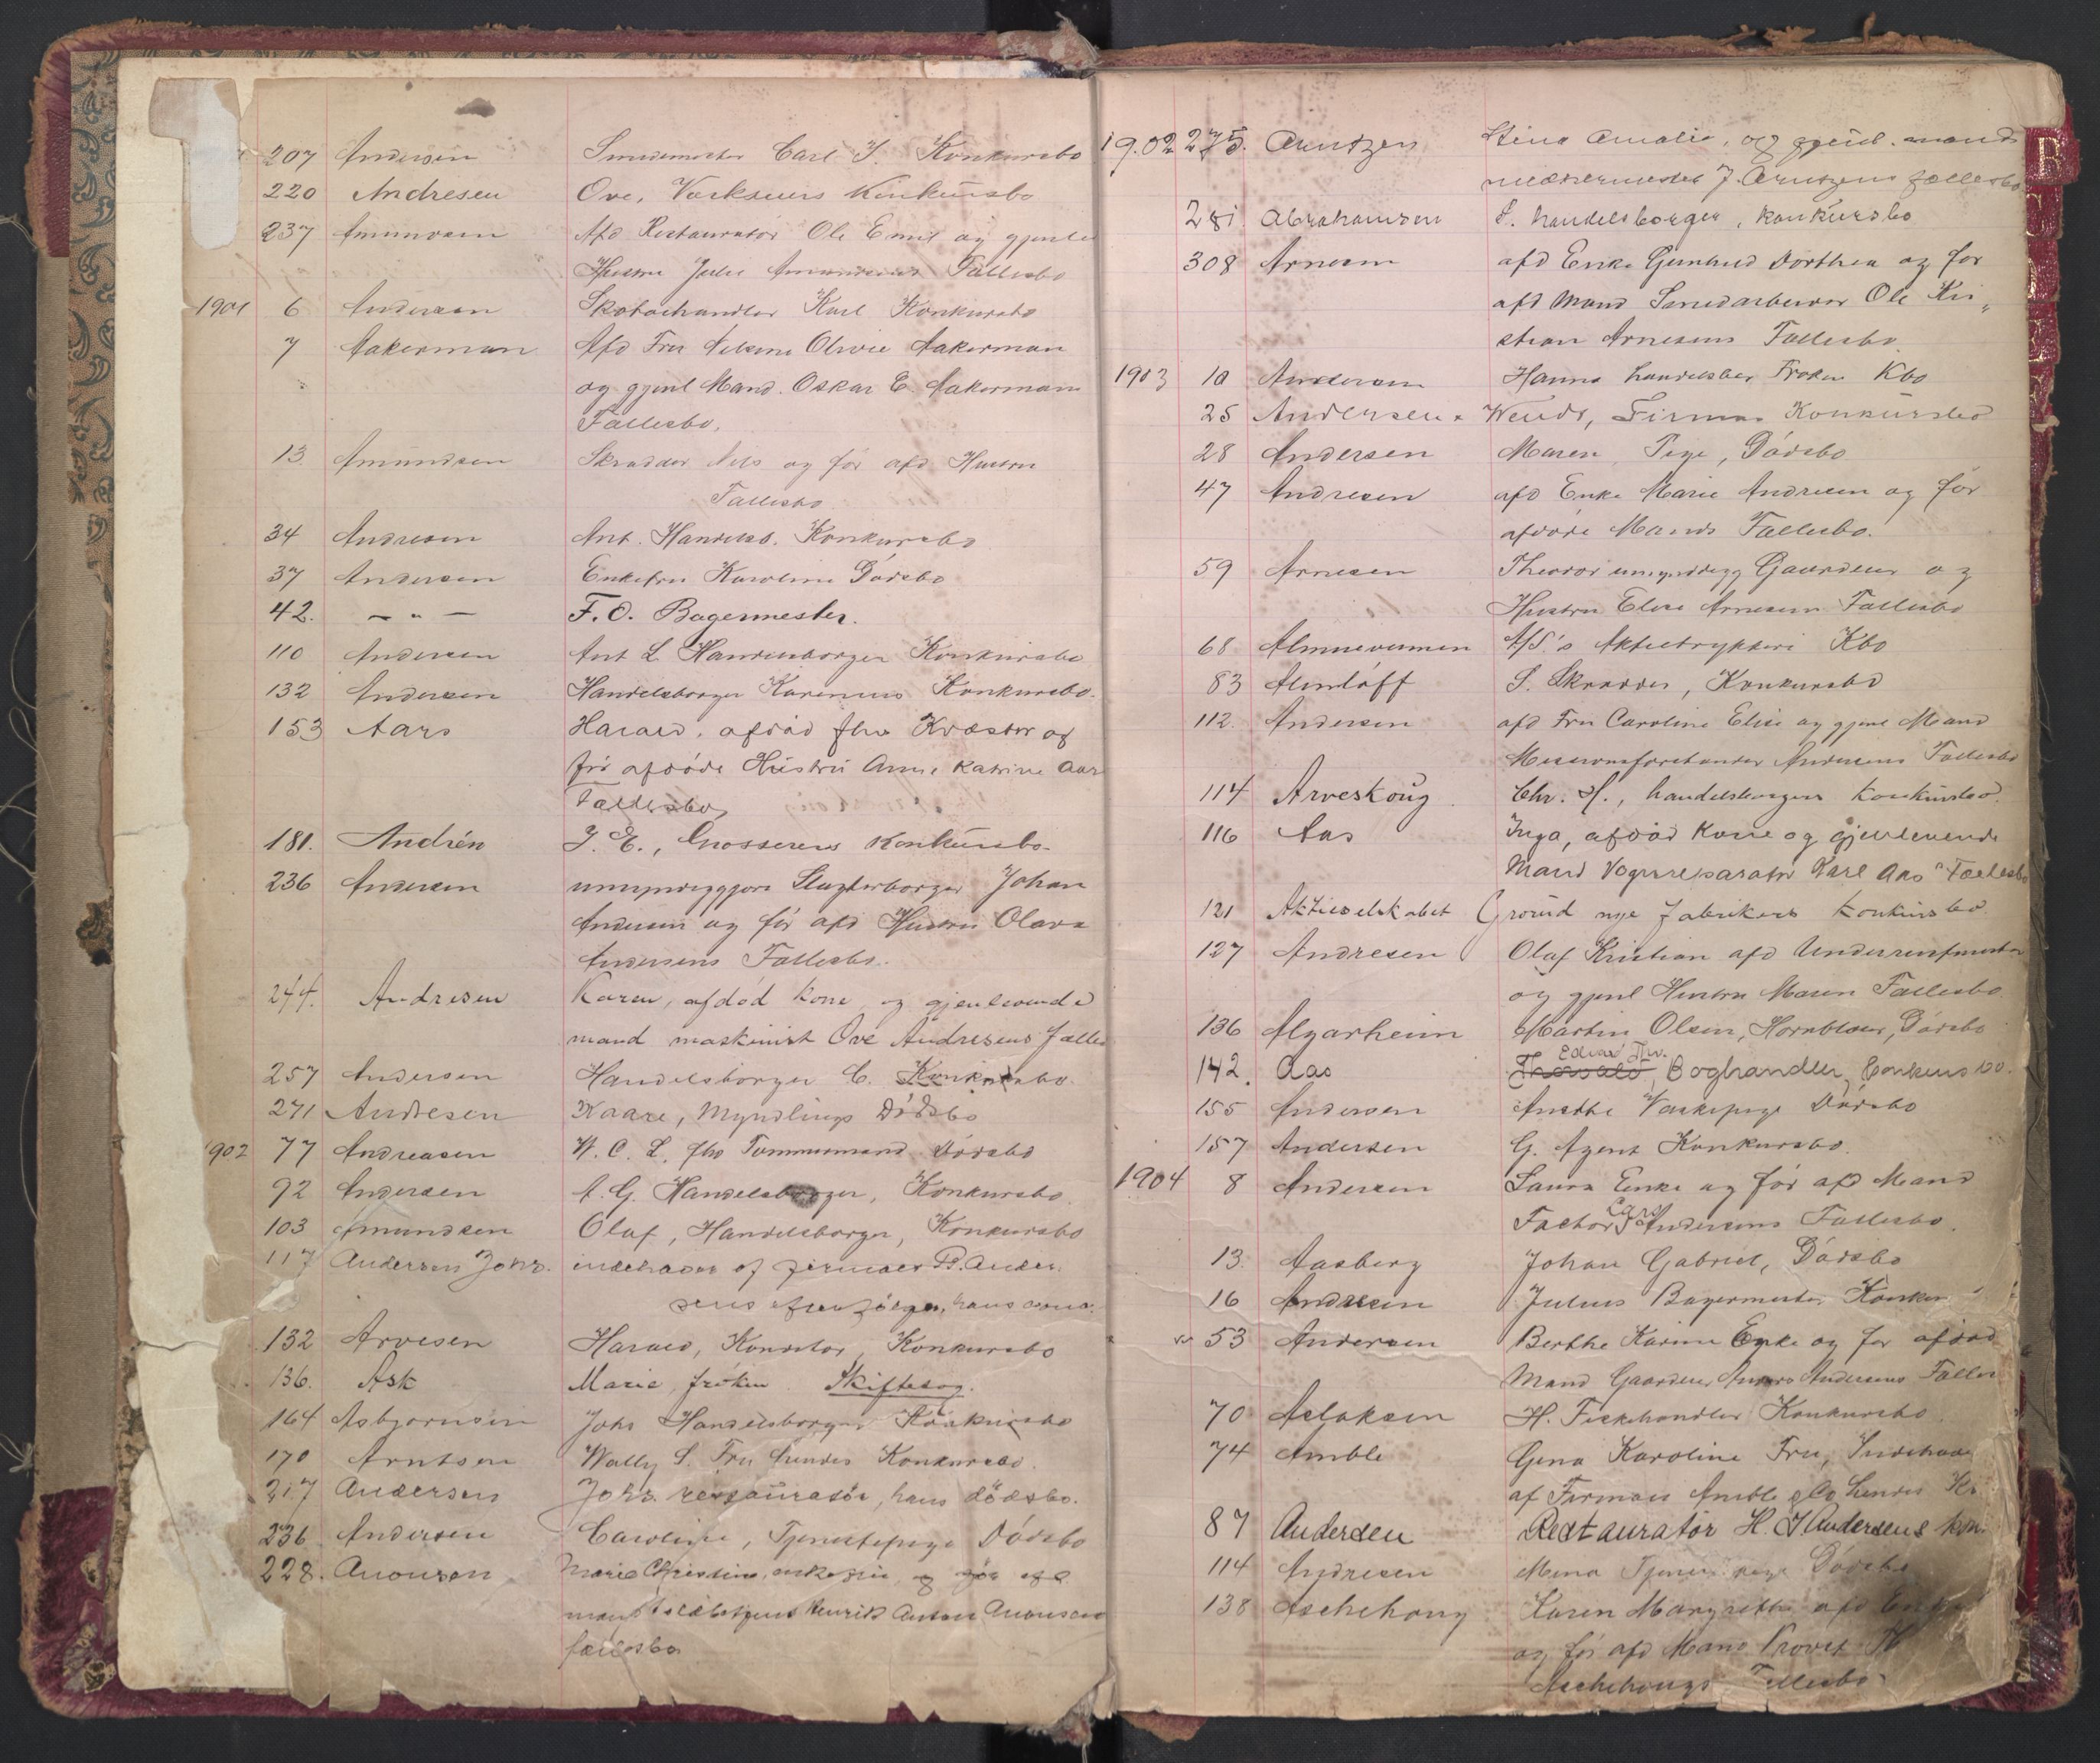 207 Andersen Smedemester Carl J. Konkursbo
220 Andresen Ove, Konkursbo
237 Amundsen Afd Restauratør Ole Emil og gjenlev
Hustru Julie Amundsens Fællesbo
1901 6 Andersen Skotøihandler Karl Konkursbo
7 Aakerman Afd Fru Olivie Aakerman
og gjenl Mand. Oskar E. Aakermann
Fællesbo.
13 Amundsen Skrædder Nils og før afd Hustru
Fællesbo
34 Andresen Ant. Handelsb. Konkursbo
37 Andersen Enkefru Karoline Dødsbo
42. — " — F. O. Bagermester.
110 Andersen Ant L Handelsborger Konkursbo
132 Andersen Handelsborger Karenius Konkursbo.
153 Aars Harald, afdød fhv og
før afdøde Hustru Anne Katrine Aars
Fællesbo
181. Andrén J. E., Grosserers Konkursbo
236 Andersen umyndiggjort Slagterborger Johan
Andersen og før afd Hustru Olava
Andersens Fællesbo.
244. Andresen Karen, afdød kone og gjenlevende
mand maskinist Ove Andresens fælles
257 Andersen Handelsborger C. Konkursbo
271 Andresen Kaare, Myndlings Dödsbo
1902 77 Andreasen H. C. L. fhv Tømmermand Dødsbo
92 Andersen A. G. Handelsborger, Konkursbo
103 Amundsen Olaf, Handelsborger, Konkursbo
117 Andersen Johs. indehaver af firmaet P. Ander.
sens efterfølger, hans
132 Arvesen Harald, Konditor, Konkursbo
136. Ask Marie, frøken Skiftesag.
164 Asbjørnsen Johs Handelsborger Konkursbo
170 Arntsen Wally S. Fru hendes Konkursbo
217 Andersen Johs. restauratör, hans dödsbo.
236 Andersen Caroline, Tjenestepige Dødsbo
228. Aronsen Marie Christine, enkefru, og før afd
mand Henrik Anton Aronsens
fællesbo
1902 275. Arntzen Stina Amalie, og gjenl. mand
J. Arntzens fællesbo
281 Abrahamsen S. handelsborger, konkursbo
308 Arnesen afd Enke Gunhild Dorthea og før
afd Mand Smedarbeider Ole Kri„
stian Arnesens Fællesbo
1903 10 Andersen Hanna handelsbor Frøken Kbo
25 Andersen & Wendt, Firma Konkursbo
28 Andersen Maren Pige, Dødsbo
47 Andresen afd Enke Marie Andresen og før
afdøde Mands Fællesbo.
59 Arnesen Theodor umyndigg Gaardeier og
Hustru Elise Arnesens Fællesbo
68 Almuevennen A/S's Aktietrykkeri Kbo
83 Almlöff S. Skrædder, Konkursbo
112. Andersen afd Fru Caroline Elise og gjenl Mand
Missionsforstander Andersens Fællesbo
114 Arveskoug Chr. H., handelsborgers konkursbo.
116 Aas Inga, afdød Kone og gjenlevende
Mand Vognreparatør Karl Aas' Fællesbo
121 Aktieselskabet Grorud nye fabrikers konkursbo
127 Andresen Olaf Kristian afd
og gjenl Hustru Maren Fællesbo
136 Algarheim Martin Olsen, Hornblæser, Dødsbo
142. Aas Thorvald, Boghandler, Konkursbo.
155 Andersen Anethe Vaskepige Dødsbo
157 Andersen G. Agent Konkursbo.
1904 8 Andersen Laura Enke og før afd Mand
Factor Carl Andersens Fællesbo.
13. Aasberg Johan Gabriel, Dødsbo
16 Andresen Julius Bagermester Konkur
53 Andersen Berthe Karine Enke og før afdød
Mand Gaardeier Andersens Fælles
70 Aslaksen H. Fiskehandler Konkursbo
74 Amble Gina Karoline Fru, Indehave
af Firmaet Amble & Co hendes K
87 Andersen Restauratör H. J Andersens kon
114 Andresen Mina Tjenestepige Dødsbo
138 Aschehoug Karen Margrethe afd Enke
og før afd Mand Provst Th
Aschehougs Fællesbo